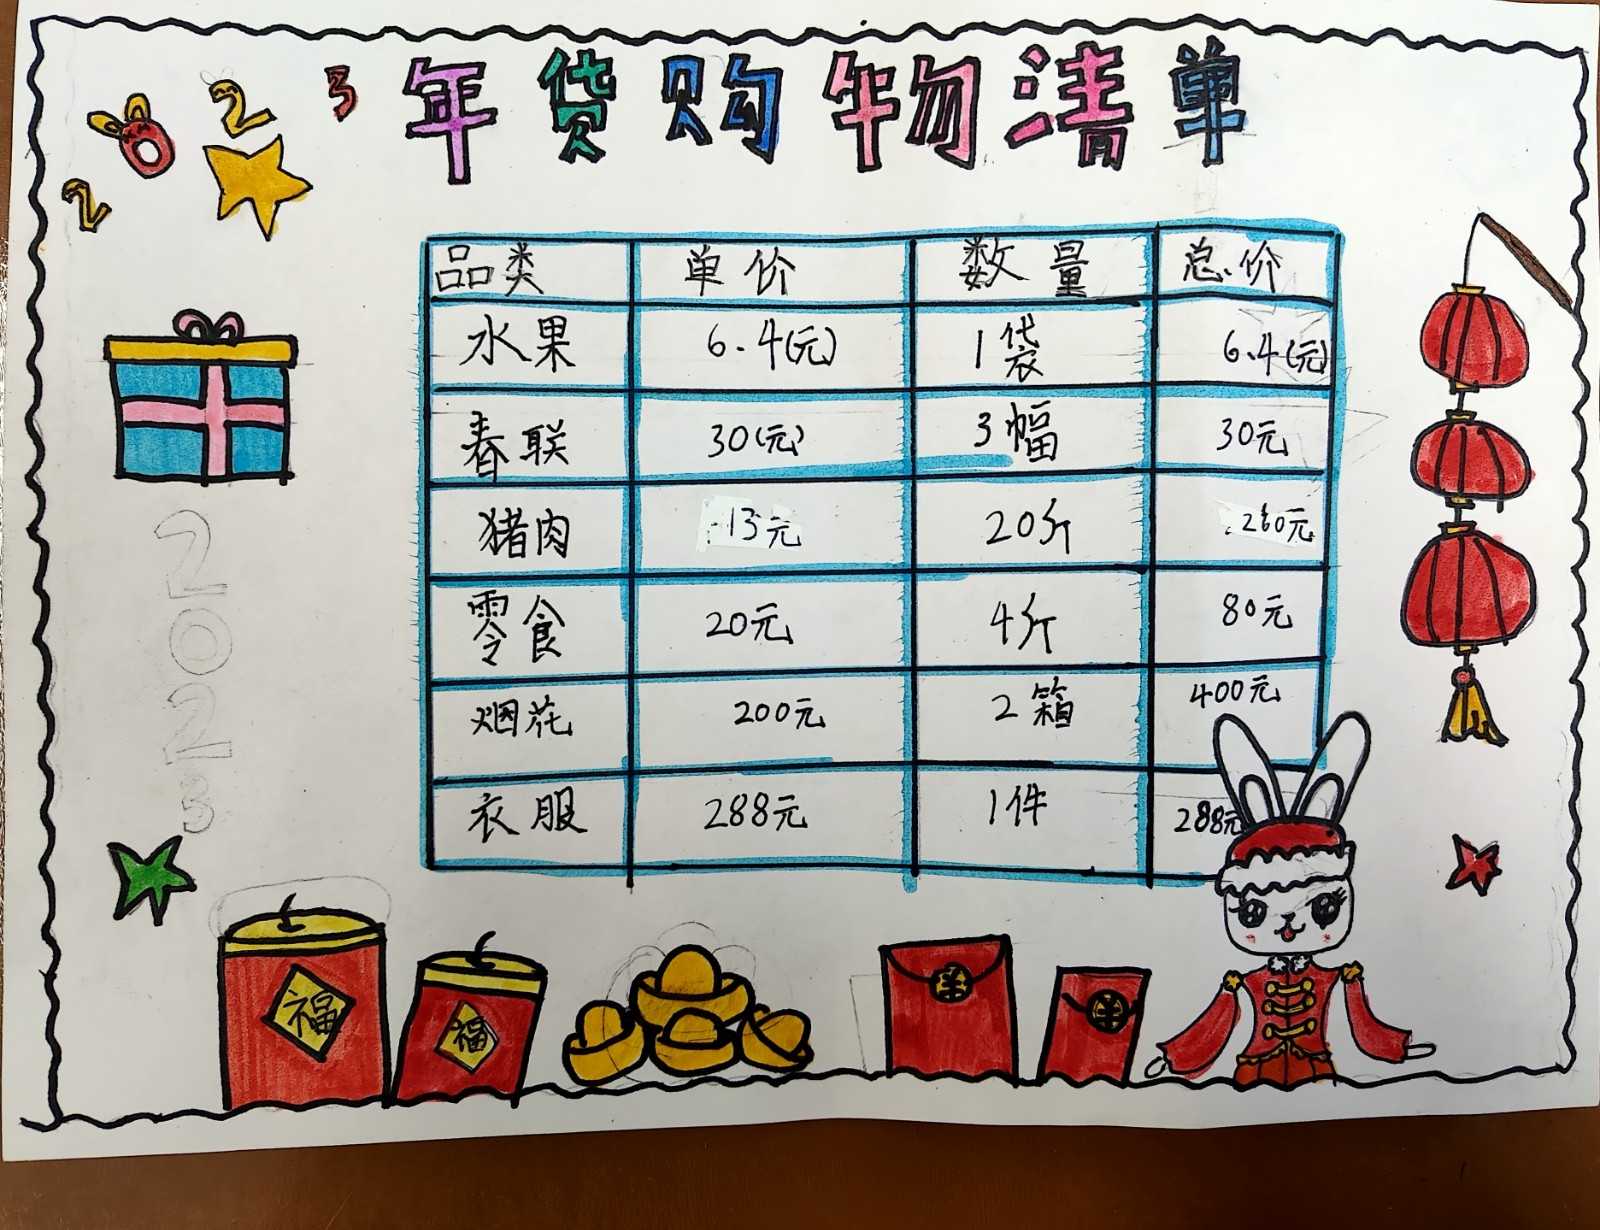 2023年货购物清单
品类 单价 数量 总价
水果 6.4(元) 1袋 6.4(元)
春联 30(元) 3幅 30元
猪肉 13元 20斤 260元
零食 20元 4斤 80元
烟花 200元 2箱 400元
衣服 288元 1件 288元
2023
福
福